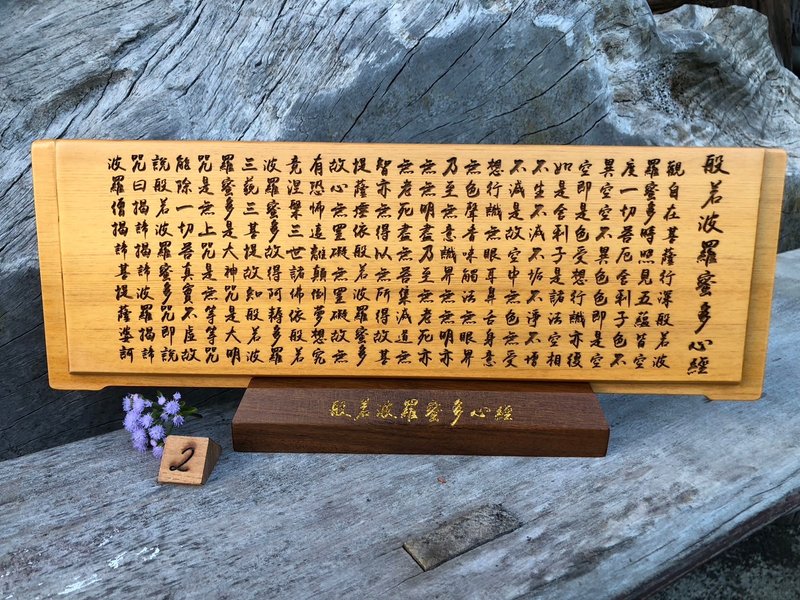 般若波羅蜜多心經
觀自在菩薩行深般若波
羅蜜多時照見五蘊皆空
度一切苦厄舍利子色不
異空空不異色色即是空
空即是色受想行識亦復
如是舍利子是諸法空相
不生不滅不垢不淨不增
不減是故空中無色無受
想行識無眼耳鼻舌身意
無色聲香味觸法無眼界
乃至無意識界無無明亦
無無明盡乃至無老死亦
無老死盡無苦集滅道無
智亦無得以無所得故菩
提薩埵依般若波羅蜜多
故心無罣礙無罣礙故無
有恐怖遠離顛倒夢想究
竟涅槃三世諸佛依般若
波羅蜜多故得阿耨多羅
三藐三菩提故知般若波
羅蜜多是大神咒是大明
咒是無上咒是無等等咒
能除一切苦真實不虛故
說般若波羅蜜多咒即說
咒曰揭諦揭諦波羅揭諦
波羅僧揭諦菩提薩婆訶
般若波羅蜜多心經
2